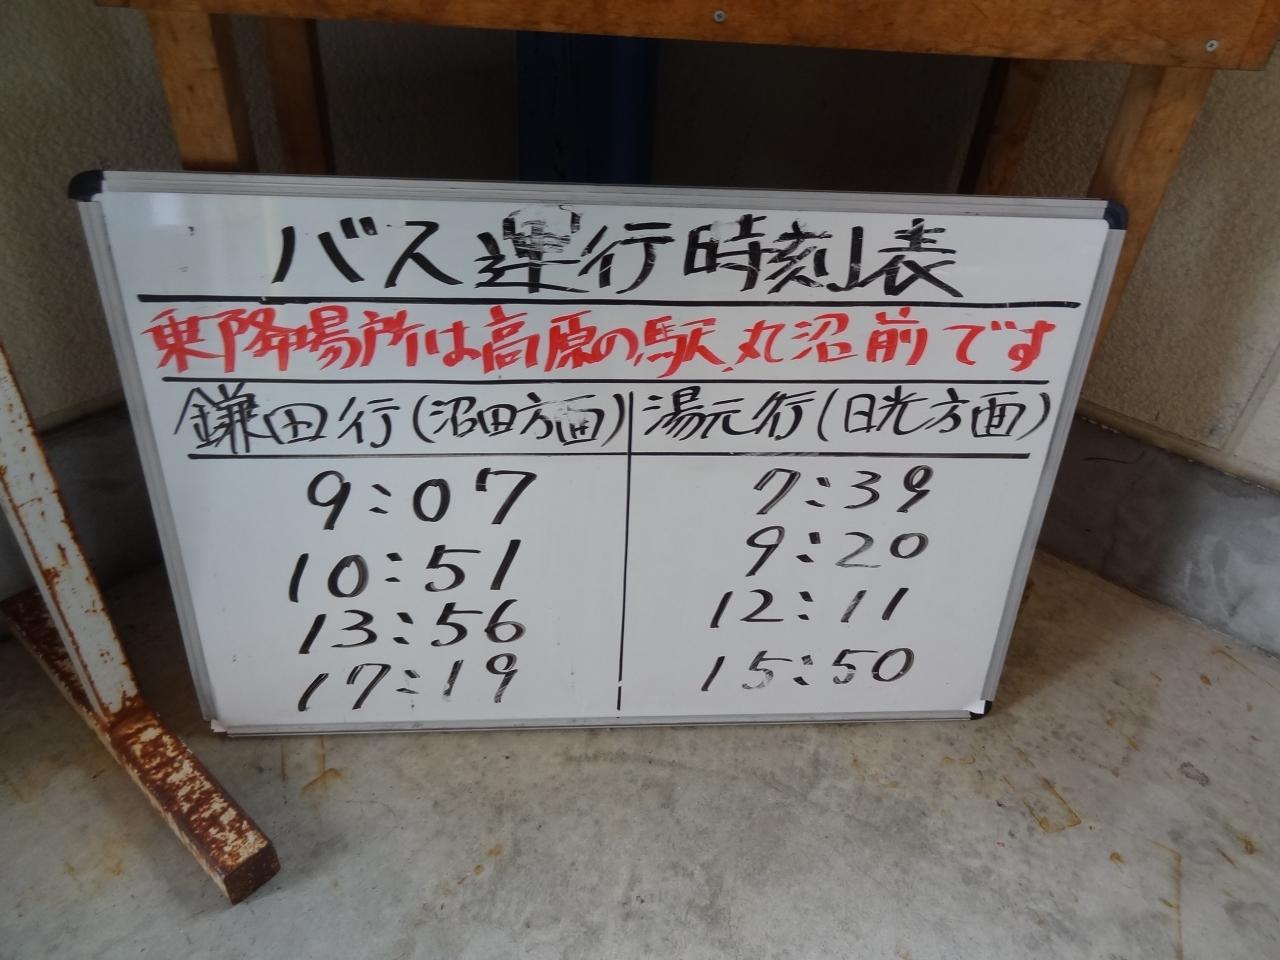 バス運行時刻表
乗降場所は高原の駅丸沼前です
鎌田行(沼田方面) 湯元行(日光方面)
9:07 7:39
10:51 9:20
13:56 12:11
17:19 15:50